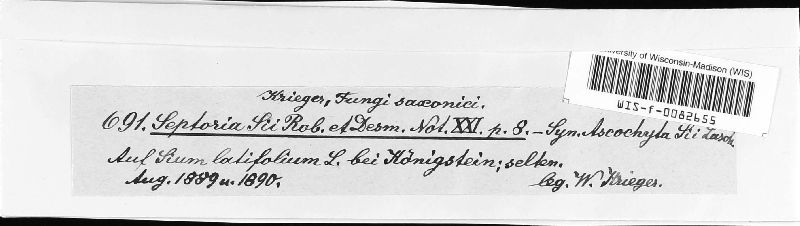 University of Wisconsin-Madison (WIS)
WIS-f-0082655
Krieger, Fungi saxonici.
691. Septoria Sii Rob. et Desm. Not. XXI. p. 8. – Syn. Ascochyta Sii Lasch.
Auf Sium latifolium L. bei Königstein; selten.
Aug. 1889 u. 1890. leg. W. Krieger.